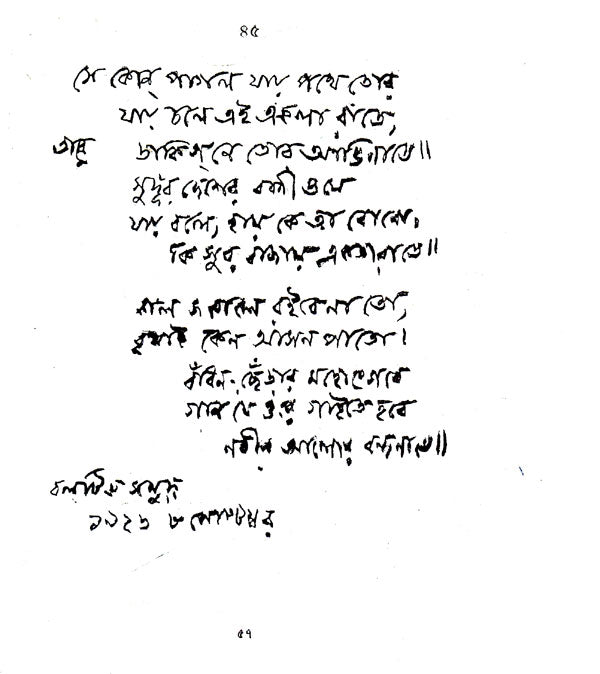 ৪৫
সে কোন্ পাগল যায় পথে তোর
যায় চলে এই একলা রাতে,
তারে ডাকিস্ নে তোর আঙিনাতে॥
সুদূর দেশের বাণী ও যে
যায় বলে, হায় কে তা বোঝে,
কি সুর বাজায় একতারাতে॥
কাল সকালে রইবেনা তো,
বৃথাই কেন আসন পাতো।
বাঁধন-ছেঁড়ার মহোৎসবে
গান যে ওরে গাইতে হবে
নবীন আলোর বন্দনাতে॥
বলটিক সমুদ্র
১৯২৬ ৮ সেপ্টেম্বর
৫৭